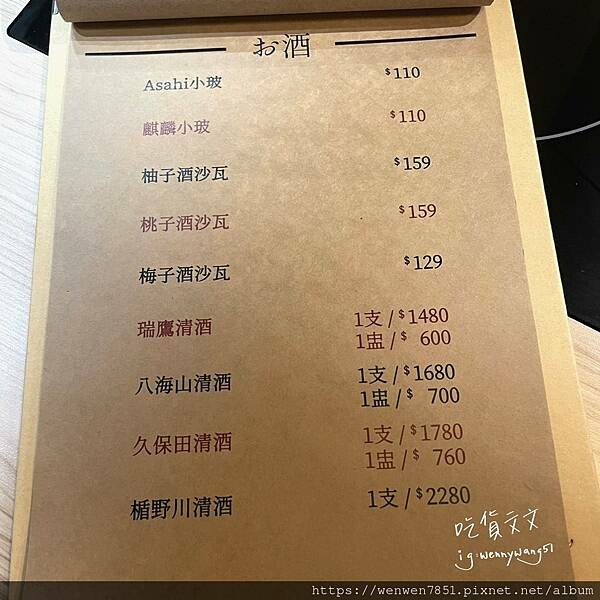 お酒
Asahi小玻 $110
麒麟小玻 $110
柚子酒沙瓦 $159
桃子酒沙瓦 $159
梅子酒沙瓦 $129
瑞鷹清酒 1支/$1480
1盅/$ 600
八海山清酒 1支/$1680
1盅/$ 700
久保田清酒 1支/$1780
1盅/$ 760
楯野川清酒 1支/$2280
吃貨文文
ig:wennywang51
https://wenwen7851.pixnet.net/album